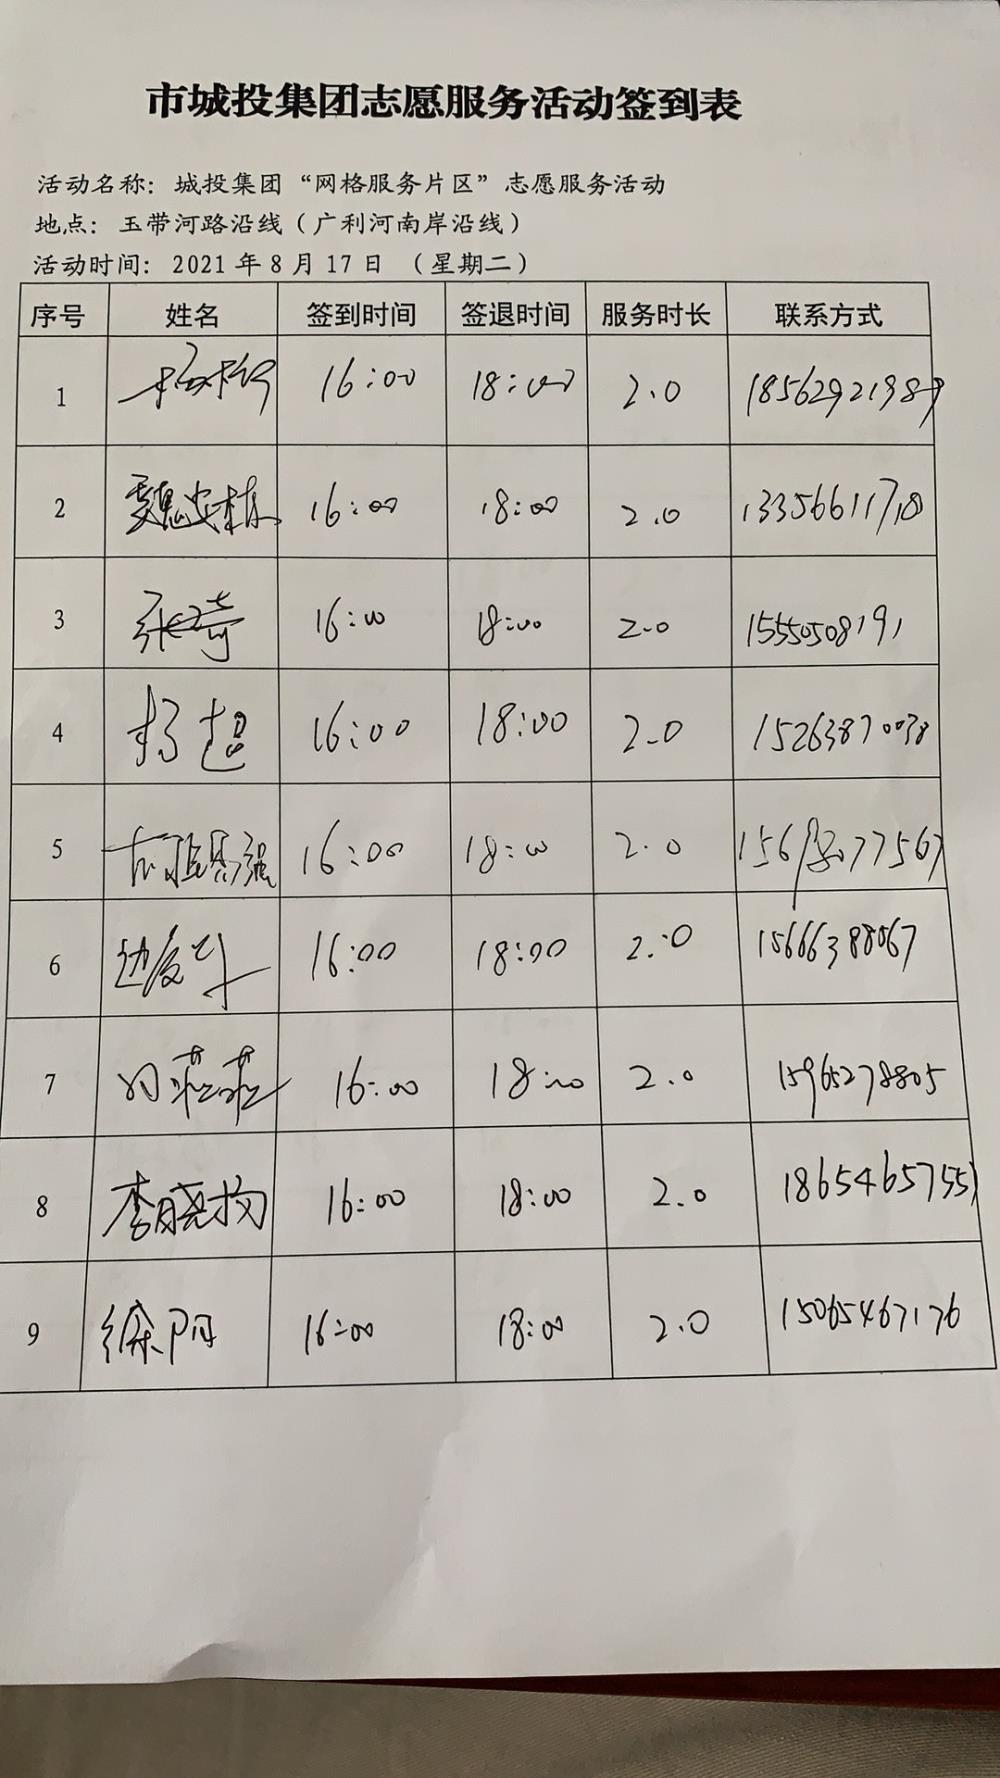 市城投集团志愿服务活动签到表
活动名称：城投集团“网格服务片区”志愿服务活动
地点：玉带河路沿线（广利河南岸沿线）
活动时间：2021年8月17日（星期二）
序号 姓名 签到时间 签退时间 服务时长 联系方式
1 16:00 18:00 2.0
2 16:00 18:00 2.0 13356611718
3 张琦 16:00 18:00 2.0 15550508191
4 杨超 16:00 18:00 2.0 15263870038
5 16:00 18:00 2.0
6 16:00 18:00 2.0 15666388067
7 16:00 18:00 2.0 15965278805
8 16:00 18:00 2.0 18654657551
9 徐阳 16:00 18:00 2.0 15065467176